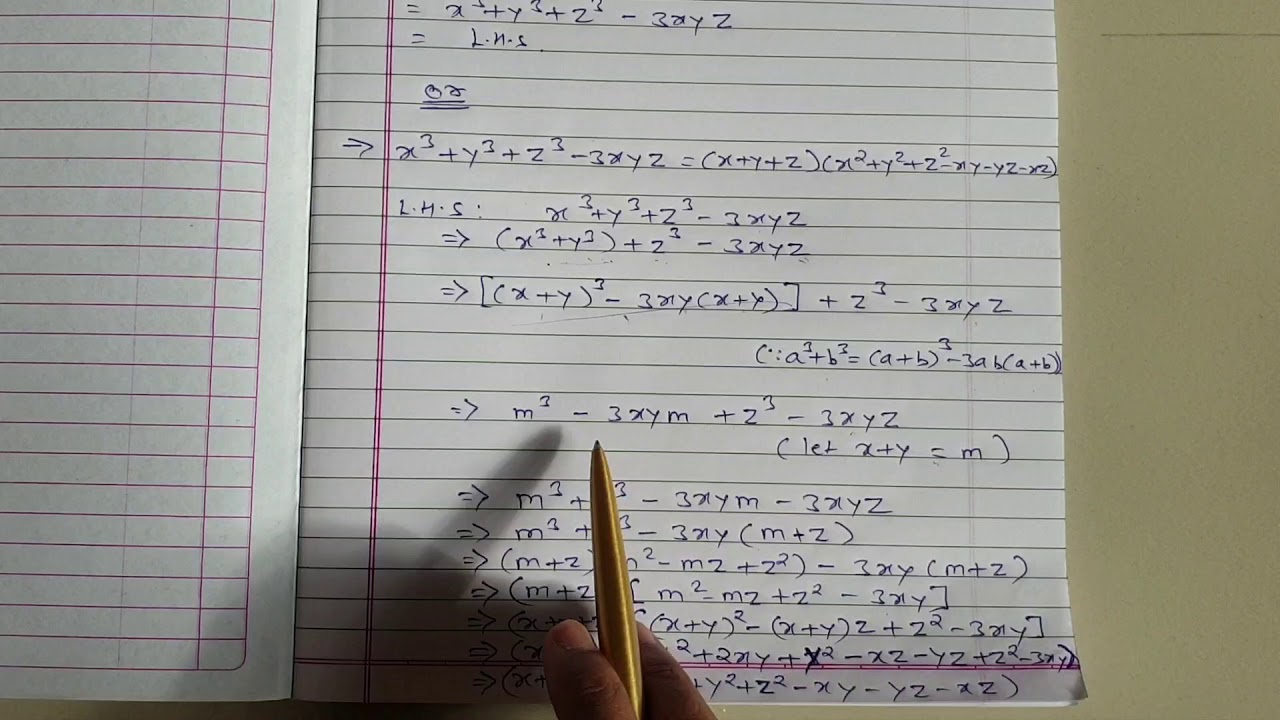 = x³+y³+z³ - 3xyz
= L.H.S
Or
=> x³+y³+z³-3xyz = (x+y+z)(x²+y²+z²-xy-yz-xz)
L.H.S: x³+y³+z³-3xyz
=> (x³+y³)+z³-3xyz
=> [(x+y)³-3xy(x+y)] + z³-3xyz
(∵a³+b³=(a+b)³-3ab(a+b))
=> m³ - 3xym + z³ - 3xyz
(let x+y = m)
=> m³+ ³ - 3xym - 3xyz
=> m³+ ³ - 3xy(m+z)
=> (m+z) m²-mz+z²) - 3xy(m+z)
=> (m+z [m²-mz+z² - 3xy]
=> (x+ (x+y)²-(x+y)z+z²-3xy]
=> (x ²+2xy+y²-xz-yz+z²-3xy)
=> (x+ +y²+z²-xy-yz-xz)